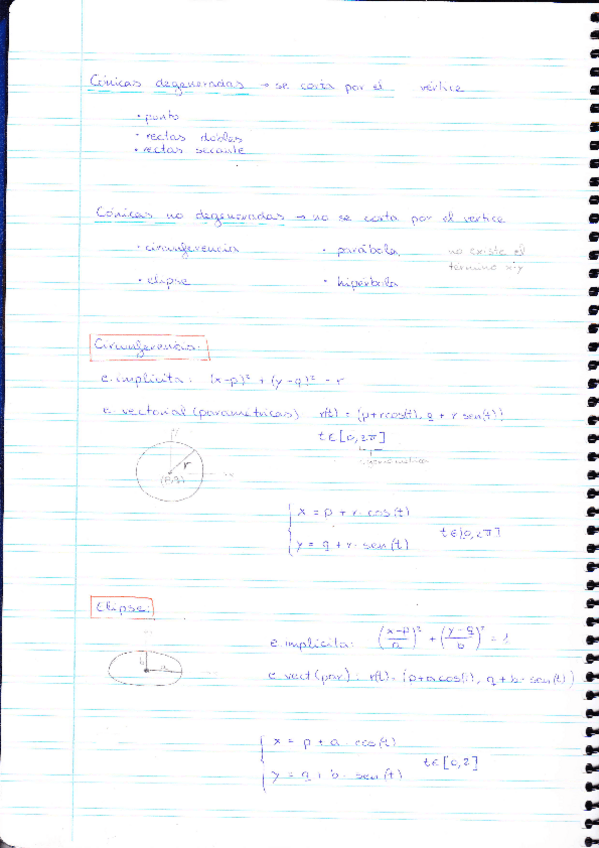 Cónicas degeneradas → se corta por el vértice
· punto
· rectas dobles
· rectas secante
Cónicas no degeneradas → no se corta por el vertice
· circunferencia · parábola no existe el
término x·y
· elipse · hipérbola
Circunferencia:
e. implícita: (x-p)² + (y-q)² = r
e. vectorial (paramétricas) r(t) = (p+r cos(t), q + r sen(t))
t ∈ [0, 2π]
r
(p,q)
x = p + r · cos(t)
t ∈ [0, 2π]
y = q + r · sen(t)
Elipse:
e. implícita: ((x-p)/a)² + ((y-q)/b)² = 1
b a
e. vect (par): r(t) = (p+a cos(t), q + b · sen(t))
x = p + a · cos(t)
t ∈ [0, 2]
y = q + b · sen(t)